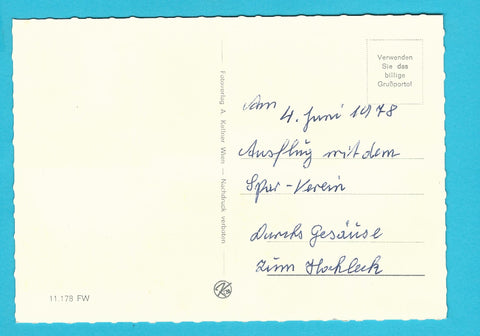 Verwenden
Sie das
billige
Grußporto!
Am 4. Juni 1978
Ausflug mit dem
Spar-Verein
Durchs Gesäuse
zum Hochleck
Fotoverlag A. Kellner Wien — Nachdruck verboten
11.178 FW